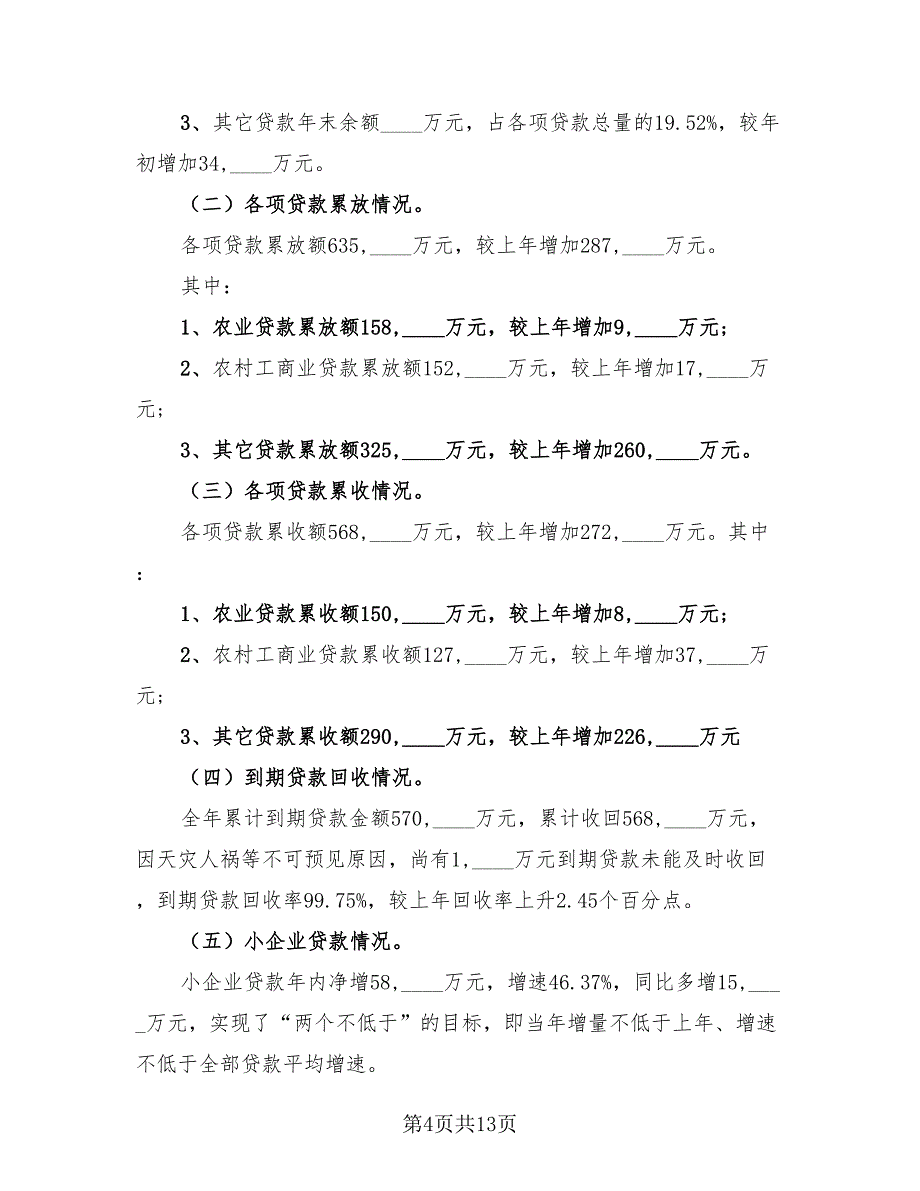 3、其它贷款年末余额____万元，占各项贷款总量的19.52%，较年
初增加34,____万元。
（二）各项贷款累放情况。
各项贷款累放额635,____万元，较上年增加287,____万元。
其中：
1、农业贷款累放额158,____万元，较上年增加9,____万元；
2、农村工商业贷款累放额152,____万元，较上年增加17,____万
元；
3、其它贷款累放额325,____万元，较上年增加260,____万元。
（三）各项贷款累收情况。
各项贷款累收额568,____万元，较上年增加272,____万元。其中
：
1、农业贷款累收额150,____万元，较上年增加8,____万元；
2、农村工商业贷款累收额127,____万元，较上年增加37,____万
元；
3、其它贷款累收额290,____万元，较上年增加226,____万元
（四）到期贷款回收情况。
全年累计到期贷款金额570,____万元，累计收回568,____万元，
因天灾人祸等不可预见原因，尚有1,____万元到期贷款未能及时收回
，到期贷款回收率99.75%，较上年回收率上升2.45个百分点。
（五）小企业贷款情况。
小企业贷款年内净增58,____万元，增速46.37%，同比多增15,___
_万元，实现了“两个不低于”的目标，即当年增量不低于上年、增速
不低于全部贷款平均增速。
第4页共13页